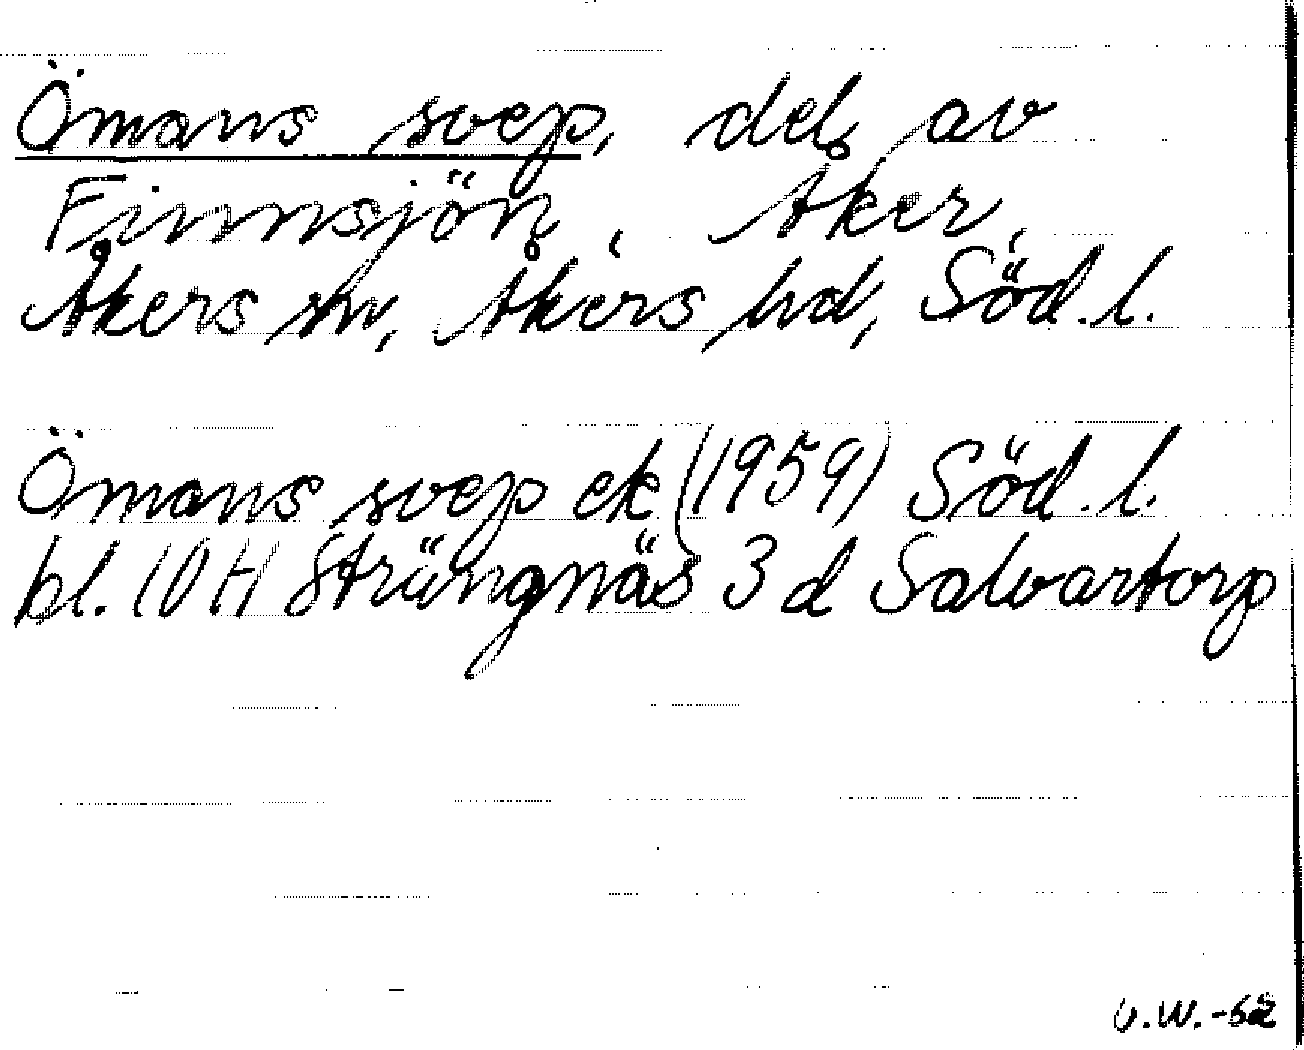 Ömans svep, del av
Finnsjön, Åker,
Åkers sn, Åkers hd, Söd.l.
Ömans svep ek (1959) Söd.l.
bl. 10H Strängnäs 3 d Salvartorp
U.W.-62